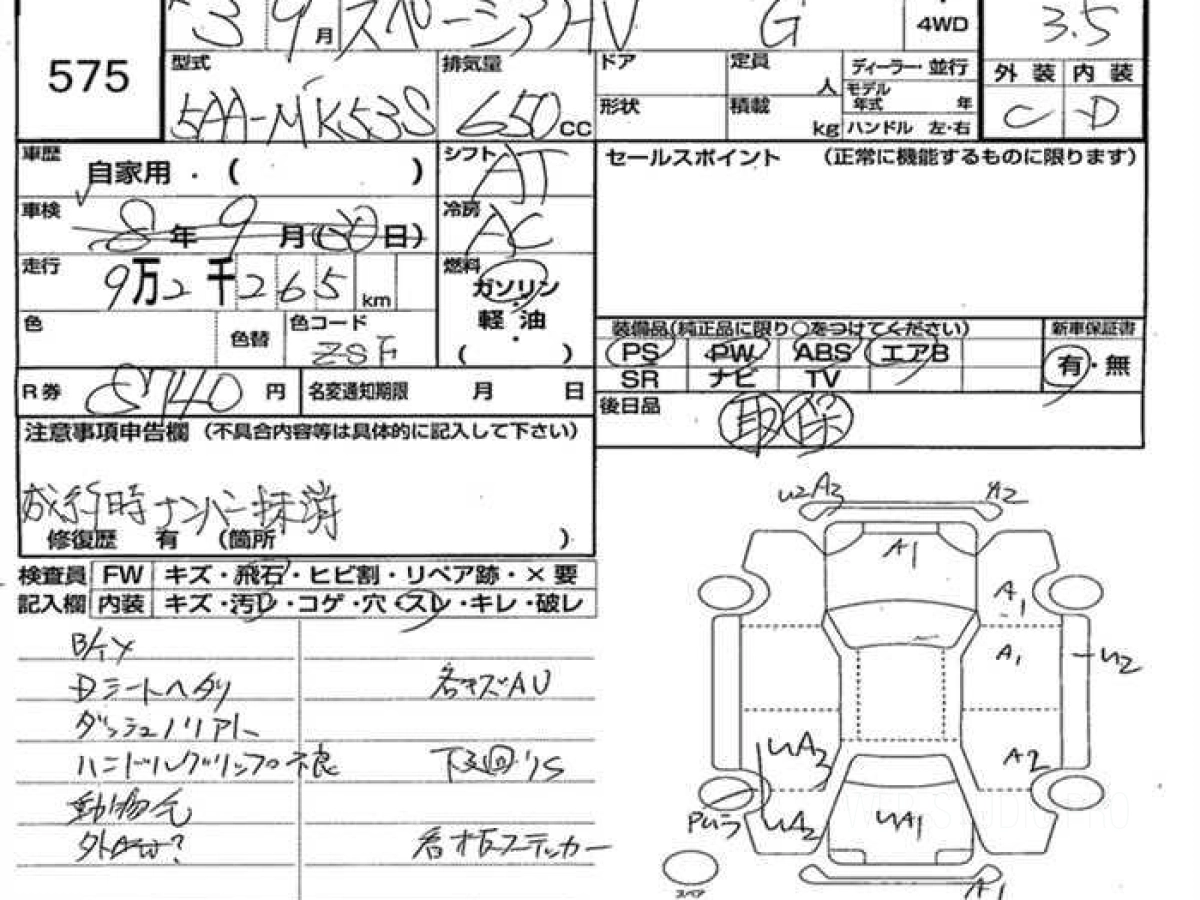 3 9月 スペーシアHV G 4WD 3.5
575
型式 排気量 ドア 定員 人 ディーラー・並行 外装 内装
5AA-MK53S 650 CC 形状 積載 kg モデル年式 年 C D
ハンドル 左・右
車歴 自家用 ・ ( ) シフト AT セールスポイント (正常に機能するものに限ります)
車検 8年9月(30日) 冷房 AC
走行 9万2千265 km 燃料 ガソリン
軽油
( )
色 色替 色コード ZSF
装備品(純正品に限り○をつけてください) 新車保証書
PS PW ABS エアB 有・無
SR ナビ TV
R券 8740 円 名変通知期限 月 日
後日品 取 保
注意事項申告欄 (不具合内容等は具体的に記入して下さい)
成約時ナンバー抹消
修復歴 有 (箇所 )
検査員 FW キズ・飛石・ヒビ割・リペア跡・×要
記入欄 内装 キズ・汚レ・コゲ・穴・スレ・キレ・破レ
Dシートヘタリ 各キズAU
ハンドルグリップ不良 下廻りS
動物毛
看板ステッカー
U2A3 A2
A1
A1
A1 U2
UA3 A2
UA2 UA1
A1
スペア